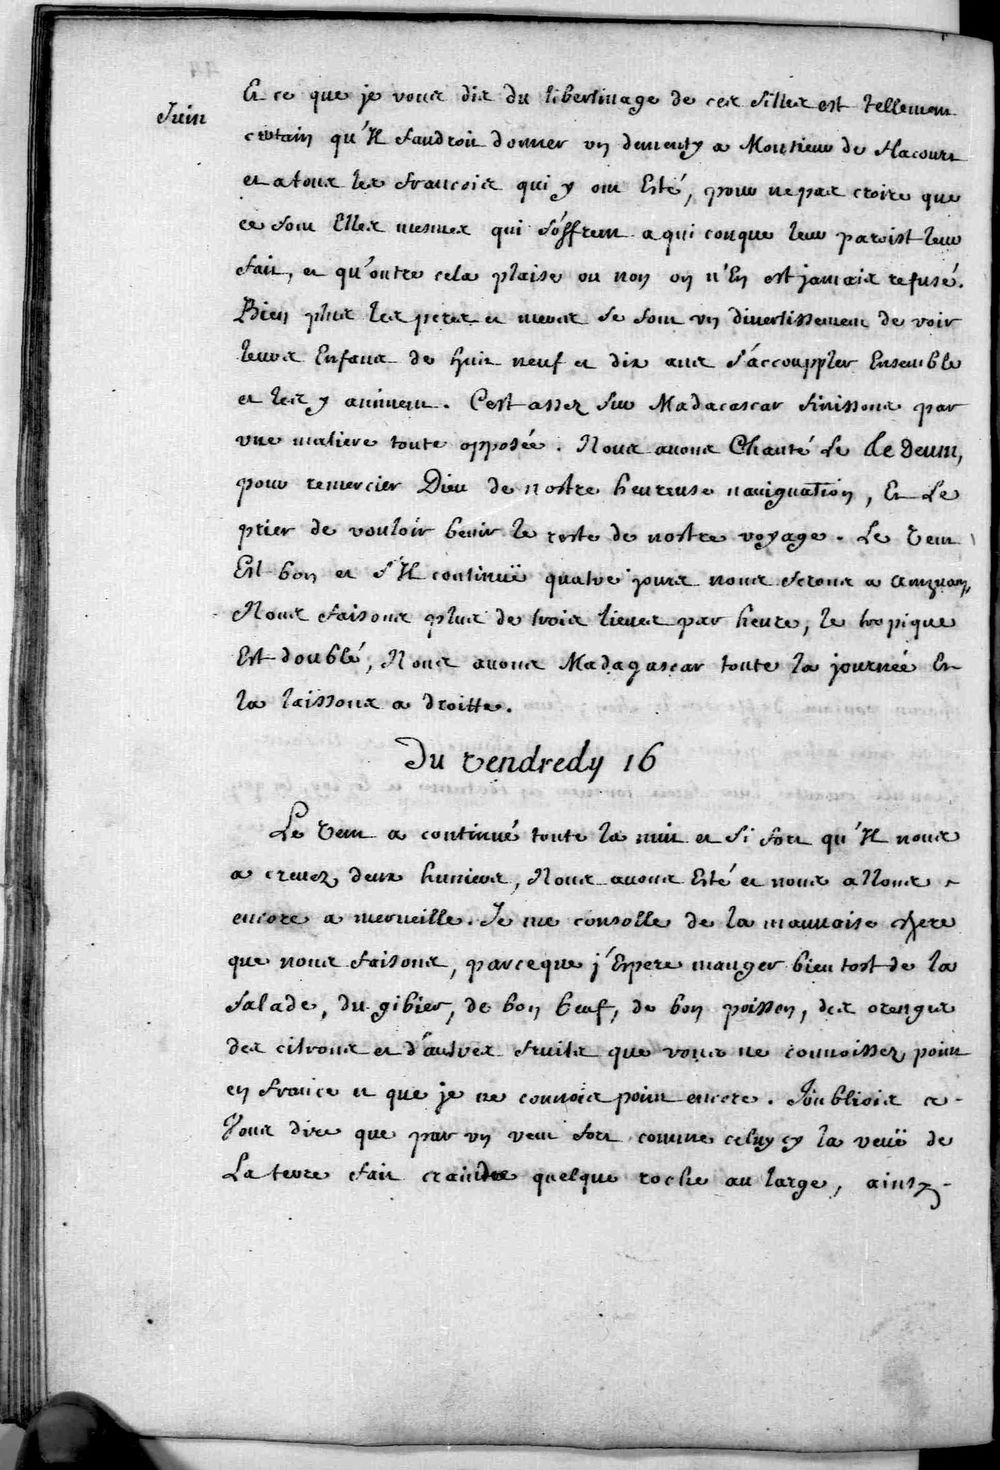 Juin
Et ce que je vous dis du libertinage de ces filles est tellement
certain qu'Il faudroit donner un dementy a Monsieur de Flacourt
et a tous les francois qui y ont Esté, pour ne pas croire que
ce sont Elles mesmes qui s'offrent a qui conque leur paroist leur
fait, et qu'outre cela plaise ou non on n'En est jamais refusé.
Bien plus les peres et meres se font un divertissement de voir
leurs Enfans de huit neuf et dix ans s'accouppler Ensemble
et les y animent. C'est assez sur Madacascar finissons par
une matiere toute opposée. Nous avons Chanté Le te Deum,
pour remercier Dieu de nostre heureuse naviguation, Et Le
prier de vouloir benir le reste de nostre voyage. Le Vent
Est bon et s'Il continuë quatre jours nous serons a amzuam,
Nous faisons plus de trois lieues par heure, le tropique
Est doublé, Nous avons Madagascar toute la journée Et
la laissons a droitte.
Du Vendredy 16
Le Vent a continué toute la nuit et si fort qu'Il nous
a crevez deux huniers, Nous avons Esté et nous allons
encore a merveille. Je me consolle de la mauvaise chere
que nous faisons, parceque j'Espere manger bien tost de la
salade, du gibier, de bon beuf, de bon poisson, des orenges
des citrons et d'autres fruits que vous ne connoissez point
en france et que je ne connois point encore. J'oubliois a
Vous dire que par un vent fort comme celuy cy la veuë de
La terre fait craindre quelque roche au large, ainsy